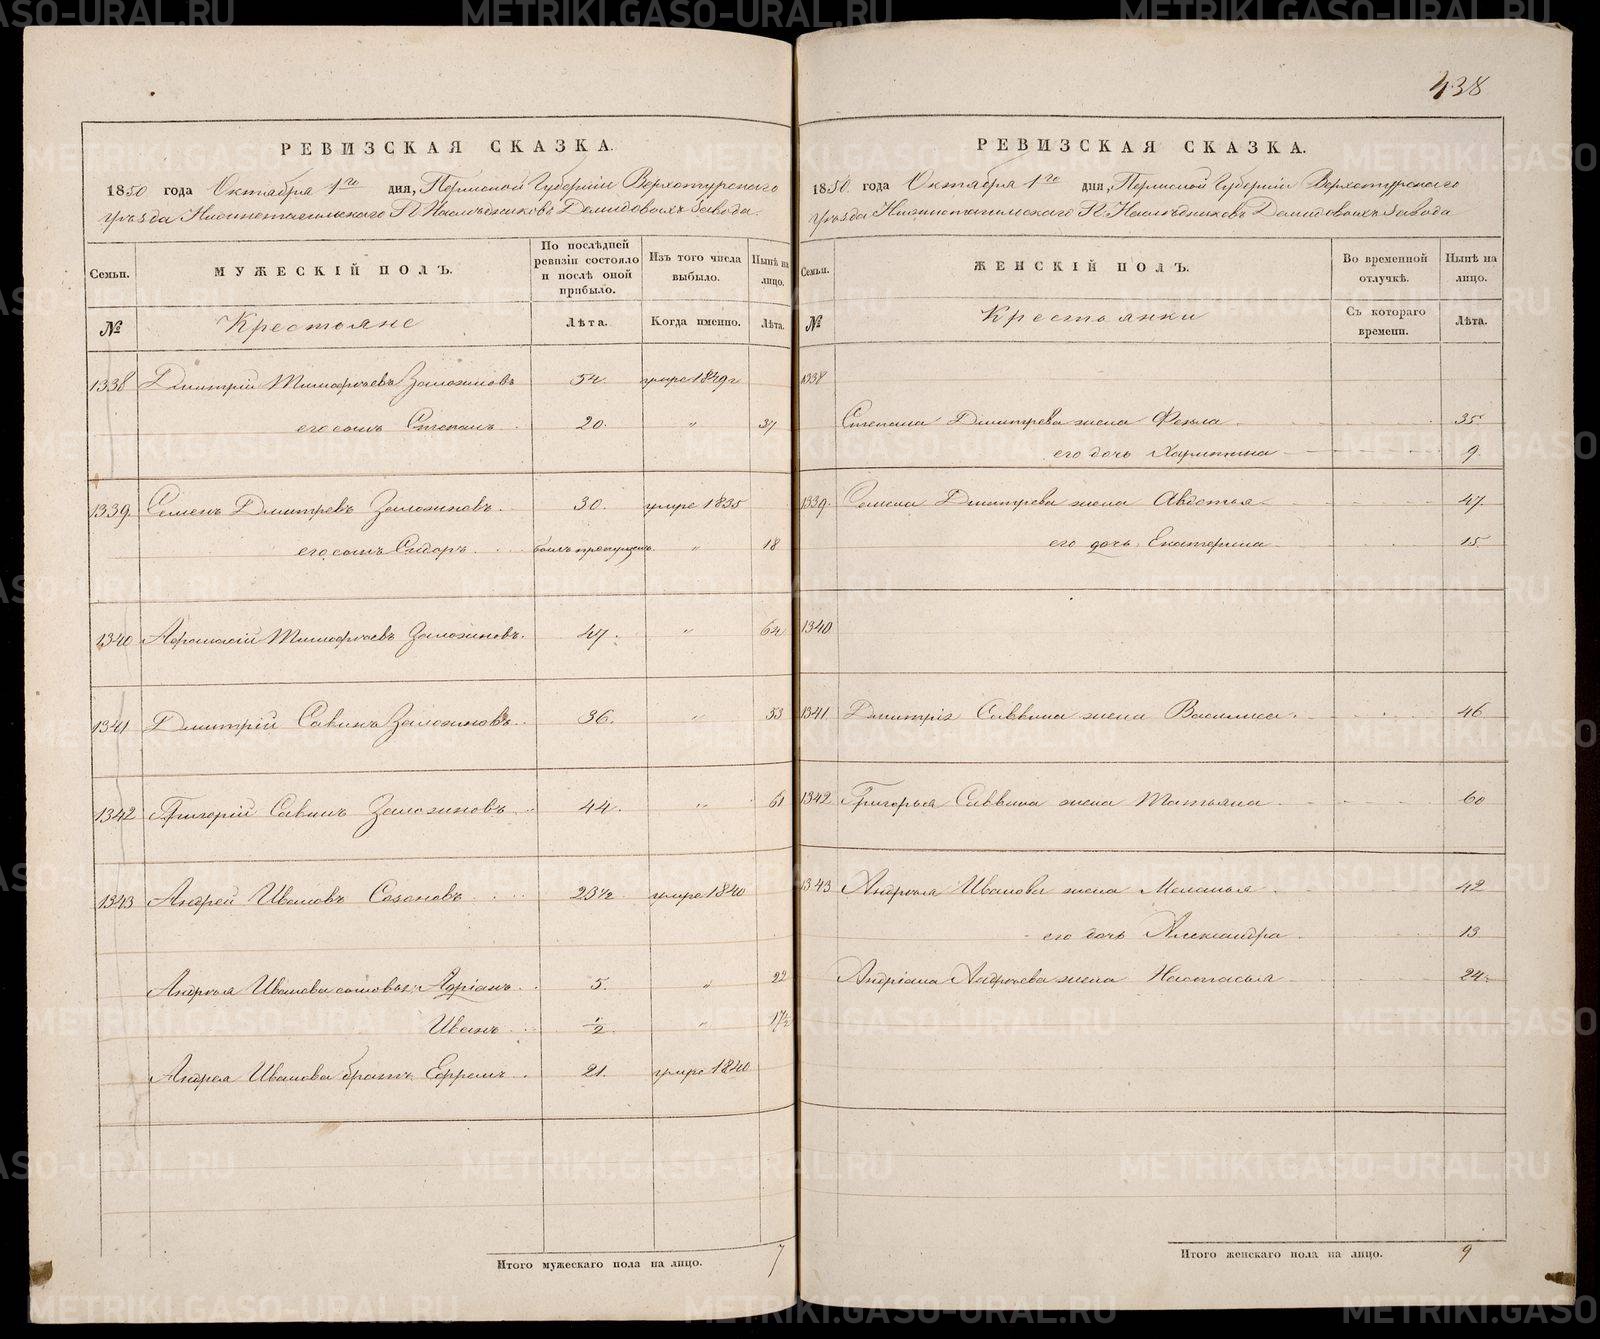 438
РЕВИЗСКАЯ СКАЗКА.
1850 года Октября 1го дня, Пермской Губерніи Верхотурскаго
Уѣзда Нижнетагильскаго Г.г. Наслѣдниковъ Демидовыхъ Завода.
Семьи. МУЖЕСКІЙ ПОЛЪ. По послѣдней ревизіи состояло и послѣ оной прибыло. Изъ того числа выбыло. Нынѣ на лицо.
№ Крестьяне Лѣта. Когда именно. Лѣта.
1338 Дмитрій Тимофѣевъ 54. умре 1849г
его сынъ Степанъ 20. " 37
1339. Семенъ Дмитревъ 30. умре 1835
его сынъ Сидоръ былъ пропущенъ " 18
1340 Афонасій Тимофѣевъ 47. " 64
1341 Дмитрій Савинъ 36. " 53
1342 Григорій Савинъ 44. " 61
1343 Андрей Ивановъ Созоновъ 23½ умре 1840
Андрея Иванова сыновья: Адріанъ 5. " 22
Иванъ ½ " 17½
Андрея Иванова братъ Ефремъ 21. умре 1840
Итого мужескаго пола на лицо. 7
РЕВИЗСКАЯ СКАЗКА.
1850 года Октября 1го дня, Пермской Губерніи Верхотурскаго
Уѣзда Нижнетагильскаго Г.г. Наслѣдниковъ Демидовыхъ Завода
Семьи. ЖЕНСКІЙ ПОЛЪ. Во временной отлучкѣ. Нынѣ на лицо.
№ Крестьянки Съ котораго времени. Лѣта.
1338
Степана Дмитрева жена Фекла 35
его дочь Харитина 9
1339. Семена Дмитрева жена Авдотья 47.
его дочь Екатерина 15
1340
1341. Дмитрія Саввина жена Василиса 46
1342 Григорья Саввина жена Татьяна 60
1343 Андрея Иванова жена Меланья 42
его дочь Александра 13
Андріана Андреева жена Настасья 24
Итого женскаго пола на лицо. 9
METRIKI.GASO-URAL.RU